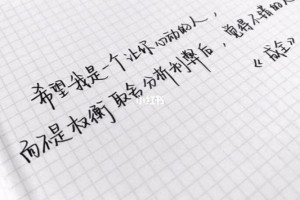 希望我是一个让你心动的人，
而不是权衡取舍分析利弊后，觉得不错的人
《成全》
小红书